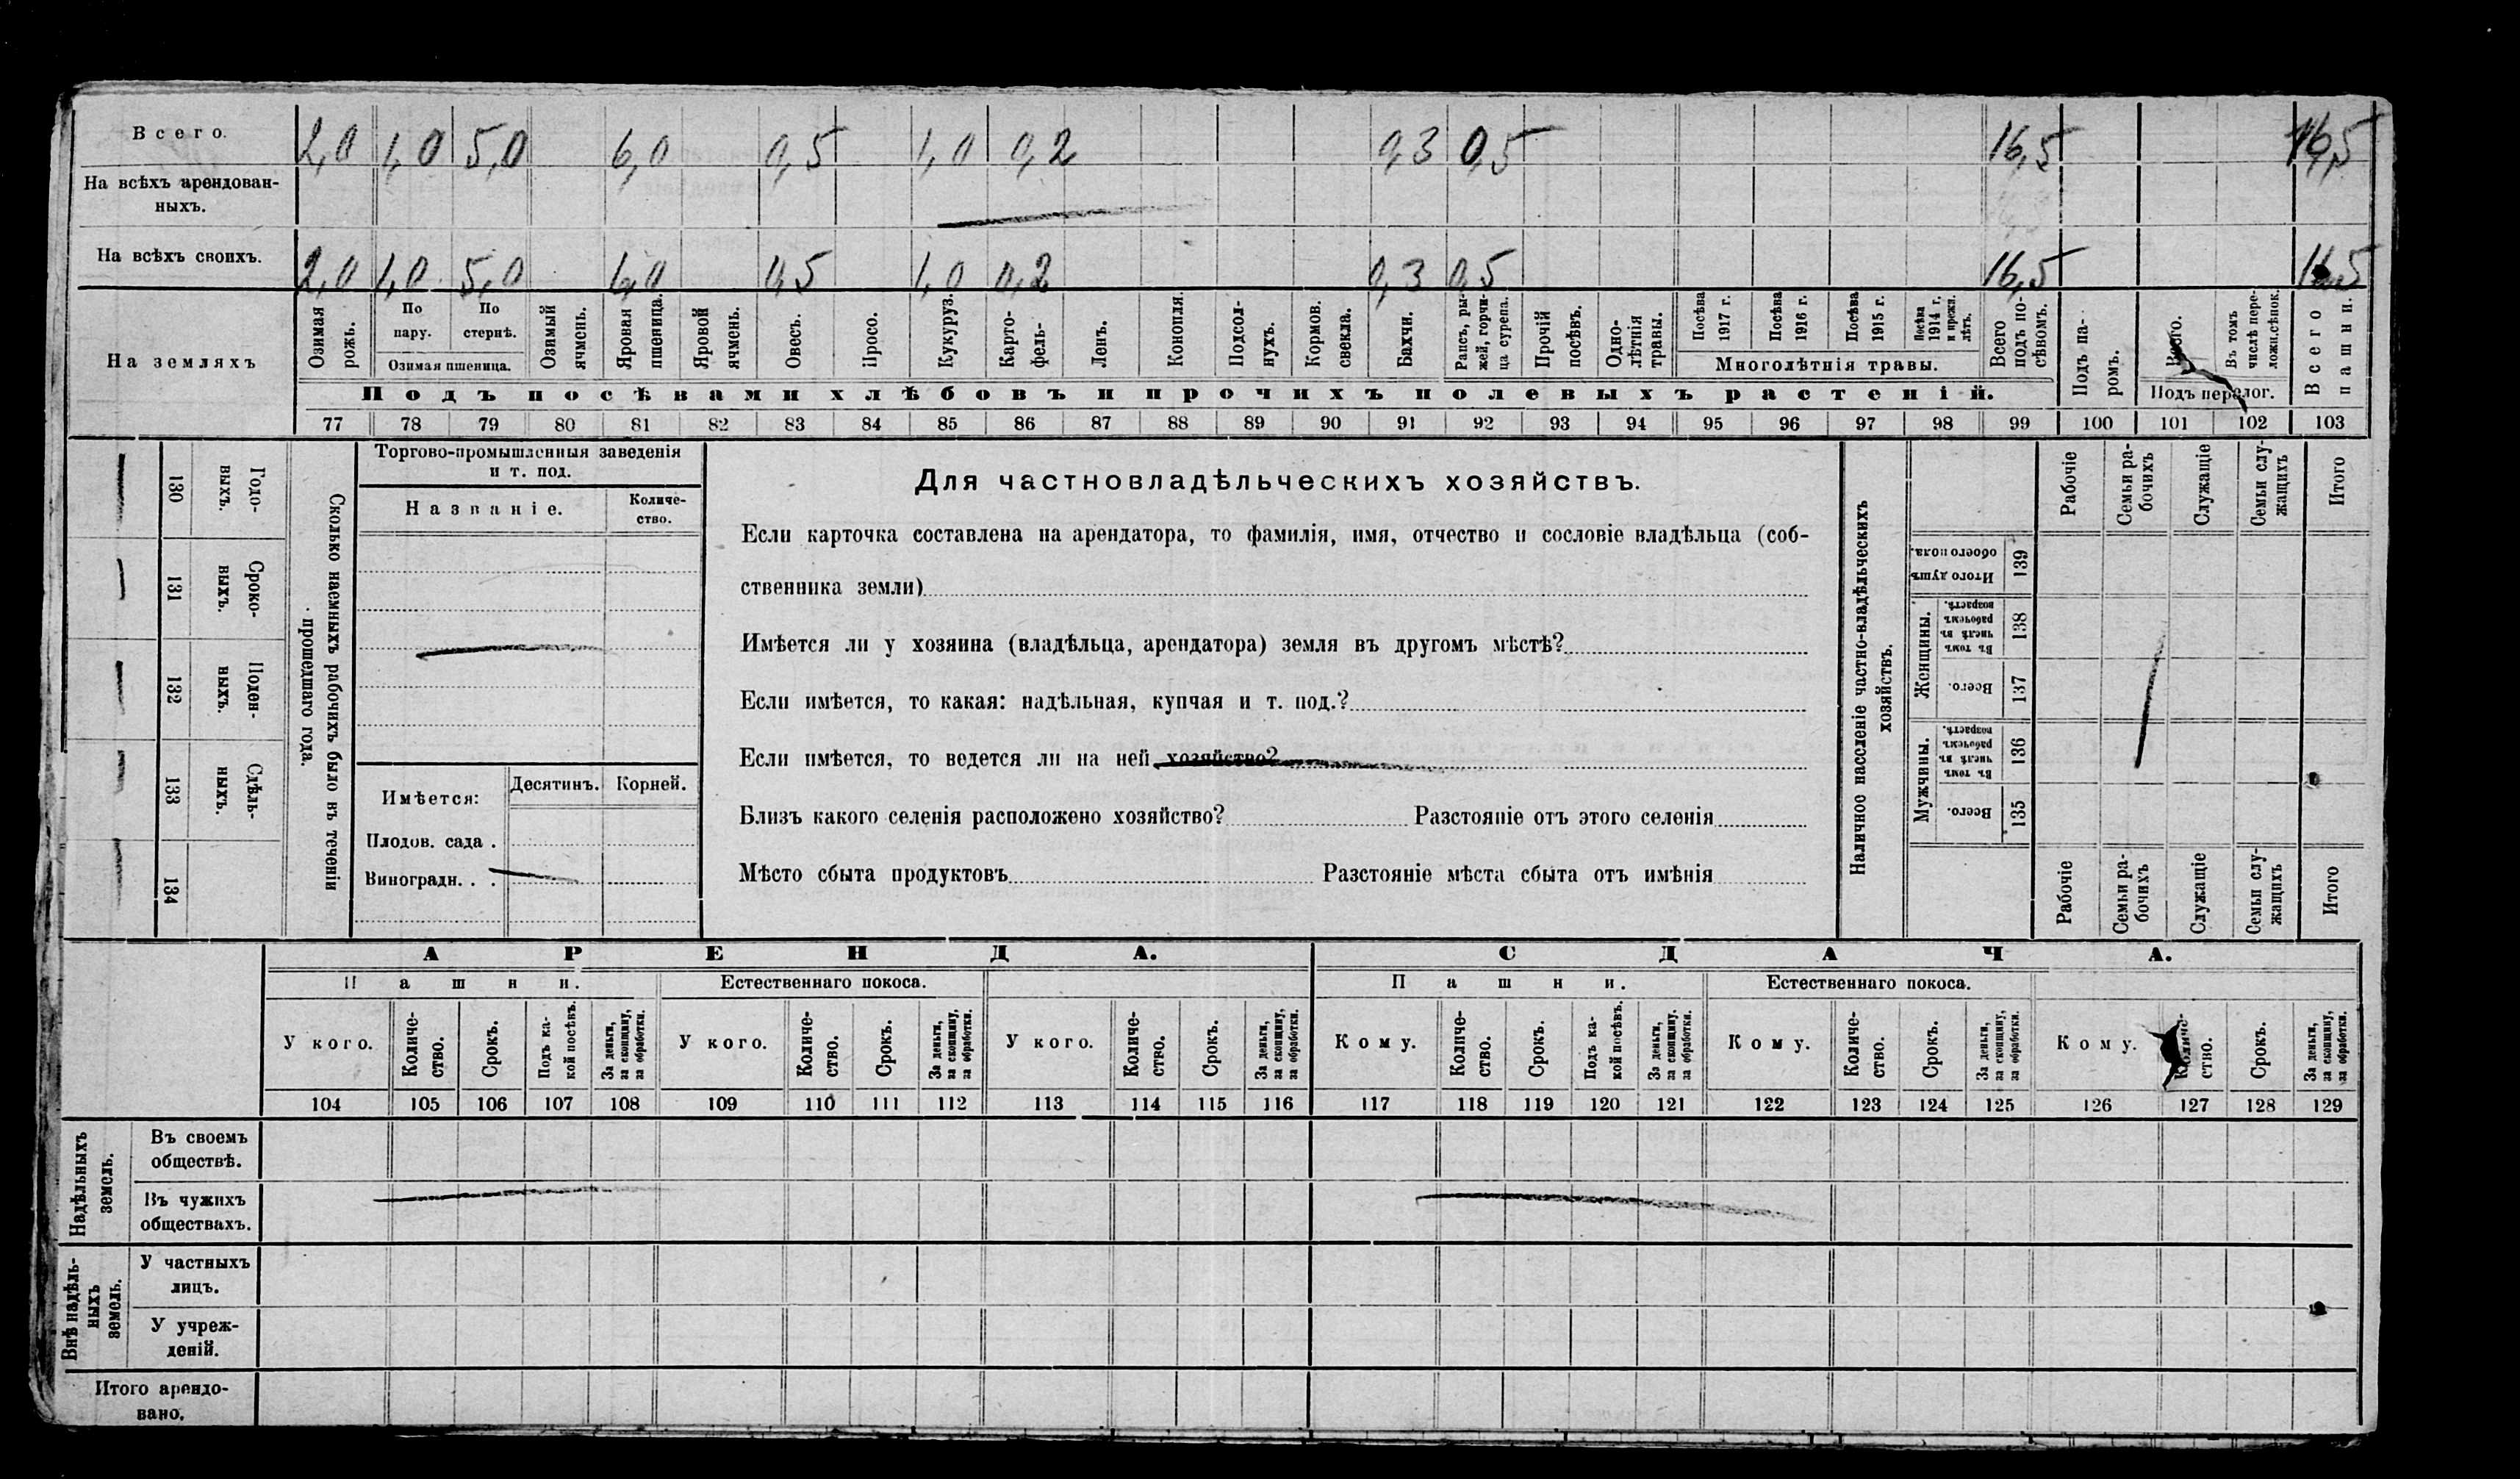 Всего. 2,0 1,0 5,0 6,0 0,5 1,0 0,2 0,3 0,5 16,5 16,5
На всѣхъ арендован-
ныхъ.
На всѣхъ своихъ. 2,0 1,0 5,0 6,0 0,5 1,0 0,2 0,3 0,5 16,5 16,5
На земляхъ
Озимая рожь.
По пару.
По стернѣ.
Озимая пшеница.
Озимый ячмень.
Яровая пшеница.
Яровой ячмень.
Овесъ.
Просо.
Кукуруз.
Карто-
фель-
Ленъ.
Конопля.
Подсол-
нухъ.
Кормов. свекла.
Бахчи.
Рапсъ, ры-
жей, горчи-
ца сурепа.
Прочій посѣвъ.
Одно-
лѣтнія травы.
Посѣва 1917 г.
Посѣва 1916 г.
Посѣва 1915 г.
Посѣва 1914 г. и прежн. лѣтъ.
Многолѣтнія травы.
Всего подъ по-
сѣвомъ.
Подъ па-
ромъ.
Всего.
Въ томъ числѣ пере-
ложн.сѣнок.
Подъ перелог.
Всего пашни.
Подъ посѣвами хлѣбовъ и прочихъ полевыхъ растеній.
77 78 79 80 81 82 83 84 85 86 87 88 89 90 91 92 93 94 95 96 97 98 99 100 101 102 103
130 Годо-
выхъ.
131 Сроко-
выхъ.
132 Поден-
ныхъ.
133 Сдѣль-
ныхъ.
134
Сколько наемныхъ рабочихъ было въ теченіи
прошедшаго года.
Торгово-промышленныя заведенія
и т. под.
Названіе.
Количе-
ство.
Имѣется:
Десятинъ. Корней.
Плодов. сада .
Виноградн. . .
Для частновладѣльческихъ хозяйствъ.
Если карточка составлена на арендатора, то фамилія, имя, отчество и сословіе владѣльца (соб-
ственника земли)
Имѣется ли у хозяина (владѣльца, арендатора) земля въ другомъ мѣстѣ?
Если имѣется, то какая: надѣльная, купчая и т. под.?
Если имѣется, то ведется ли на ней хозяйство?
Близъ какого селенія расположено хозяйство? Разстояніе отъ этого селенія
Мѣсто сбыта продуктовъ Разстояніе мѣста сбыта отъ имѣнія
Наличное населеніе частно-владѣльческихъ
хозяйствъ.
Рабочіе
Семьи ра-
бочихъ
Служащіе
Семьи слу-
жащихъ
Итого
Итого душъ обоего пола. 139
Женщины.
Въ томъ числѣ въ рабочемъ возрастѣ. 138
Всего. 137
Мужчины.
Въ томъ числѣ въ рабочемъ возрастѣ. 136
Всего. 135
Рабочіе
Семьи ра-
бочихъ
Служащіе
Семьи слу-
жащихъ
Итого
АРЕНДА. СДАЧА.
Пашни. Естественнаго покоса. Пашни. Естественнаго покоса.
У кого.
Количе-
ство.
Срокъ.
Подъ ка-
кой посѣвъ.
За деньги, за скопщину, за обработки.
У кого.
Количе-
ство.
Срокъ.
За деньги, за скопщину, за обработки.
У кого.
Количе-
ство.
Срокъ.
За деньги, за скопщину, за обработки.
Кому.
Количе-
ство.
Срокъ.
Подъ ка-
кой посѣвъ.
За деньги, за скопщину, за обработки.
Кому.
Количе-
ство.
Срокъ.
За деньги, за скопщину, за обработки.
Кому.
Количе-
ство.
Срокъ.
За деньги, за скопщину, за обработки.
104 105 106 107 108 109 110 111 112 113 114 115 116 117 118 119 120 121 122 123 124 125 126 127 128 129
Надѣльныхъ земель.
Въ своемъ
обществѣ.
Въ чужихъ
обществахъ.
Внѣ надѣль-
ныхъ земель.
У частныхъ
лицъ.
У учреж-
деній.
Итого арендо-
вано.